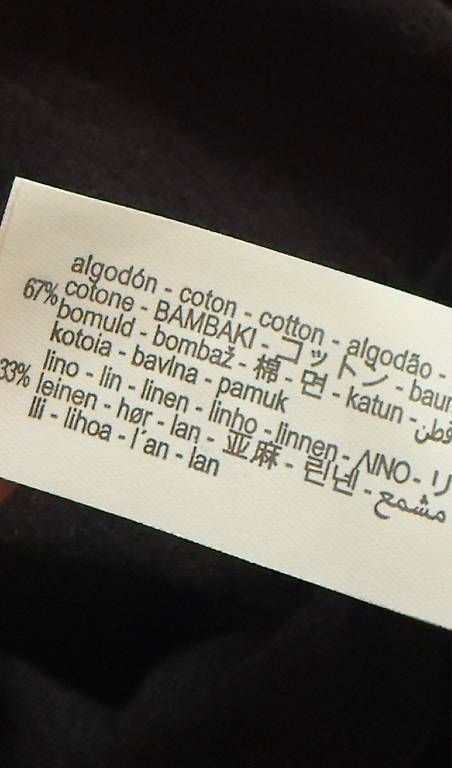 algodón - coton - cotton - algodão -
67% cotone - BAMBAKI - コットン - baum
bomuld - bombaž - 棉 - 면 - katun - قطن
kotoia - bavlna - pamuk
33% lino - lin - linen - linho - linnen - ΛΙΝΟ - リ
leinen - hør - lan - 亚麻 - 린넨 - مشمع
lli - lihoa - l´an - lan